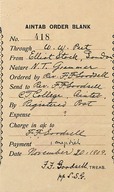 AINTAB ORDER BLANK
No. 418
Through W. W. Peet
From Elliot Stock, London
Name N. T. Grammar
Ordered by Rev. F. F. Goodsell
Send to Rev. F. F. Goodsell
C. T. College, Aintab.
By Registered Post
Expense
Charge in a/c to
F. F. Goodsell
Payment
November 20, 1909.
F. F. Goodsell TREAS.